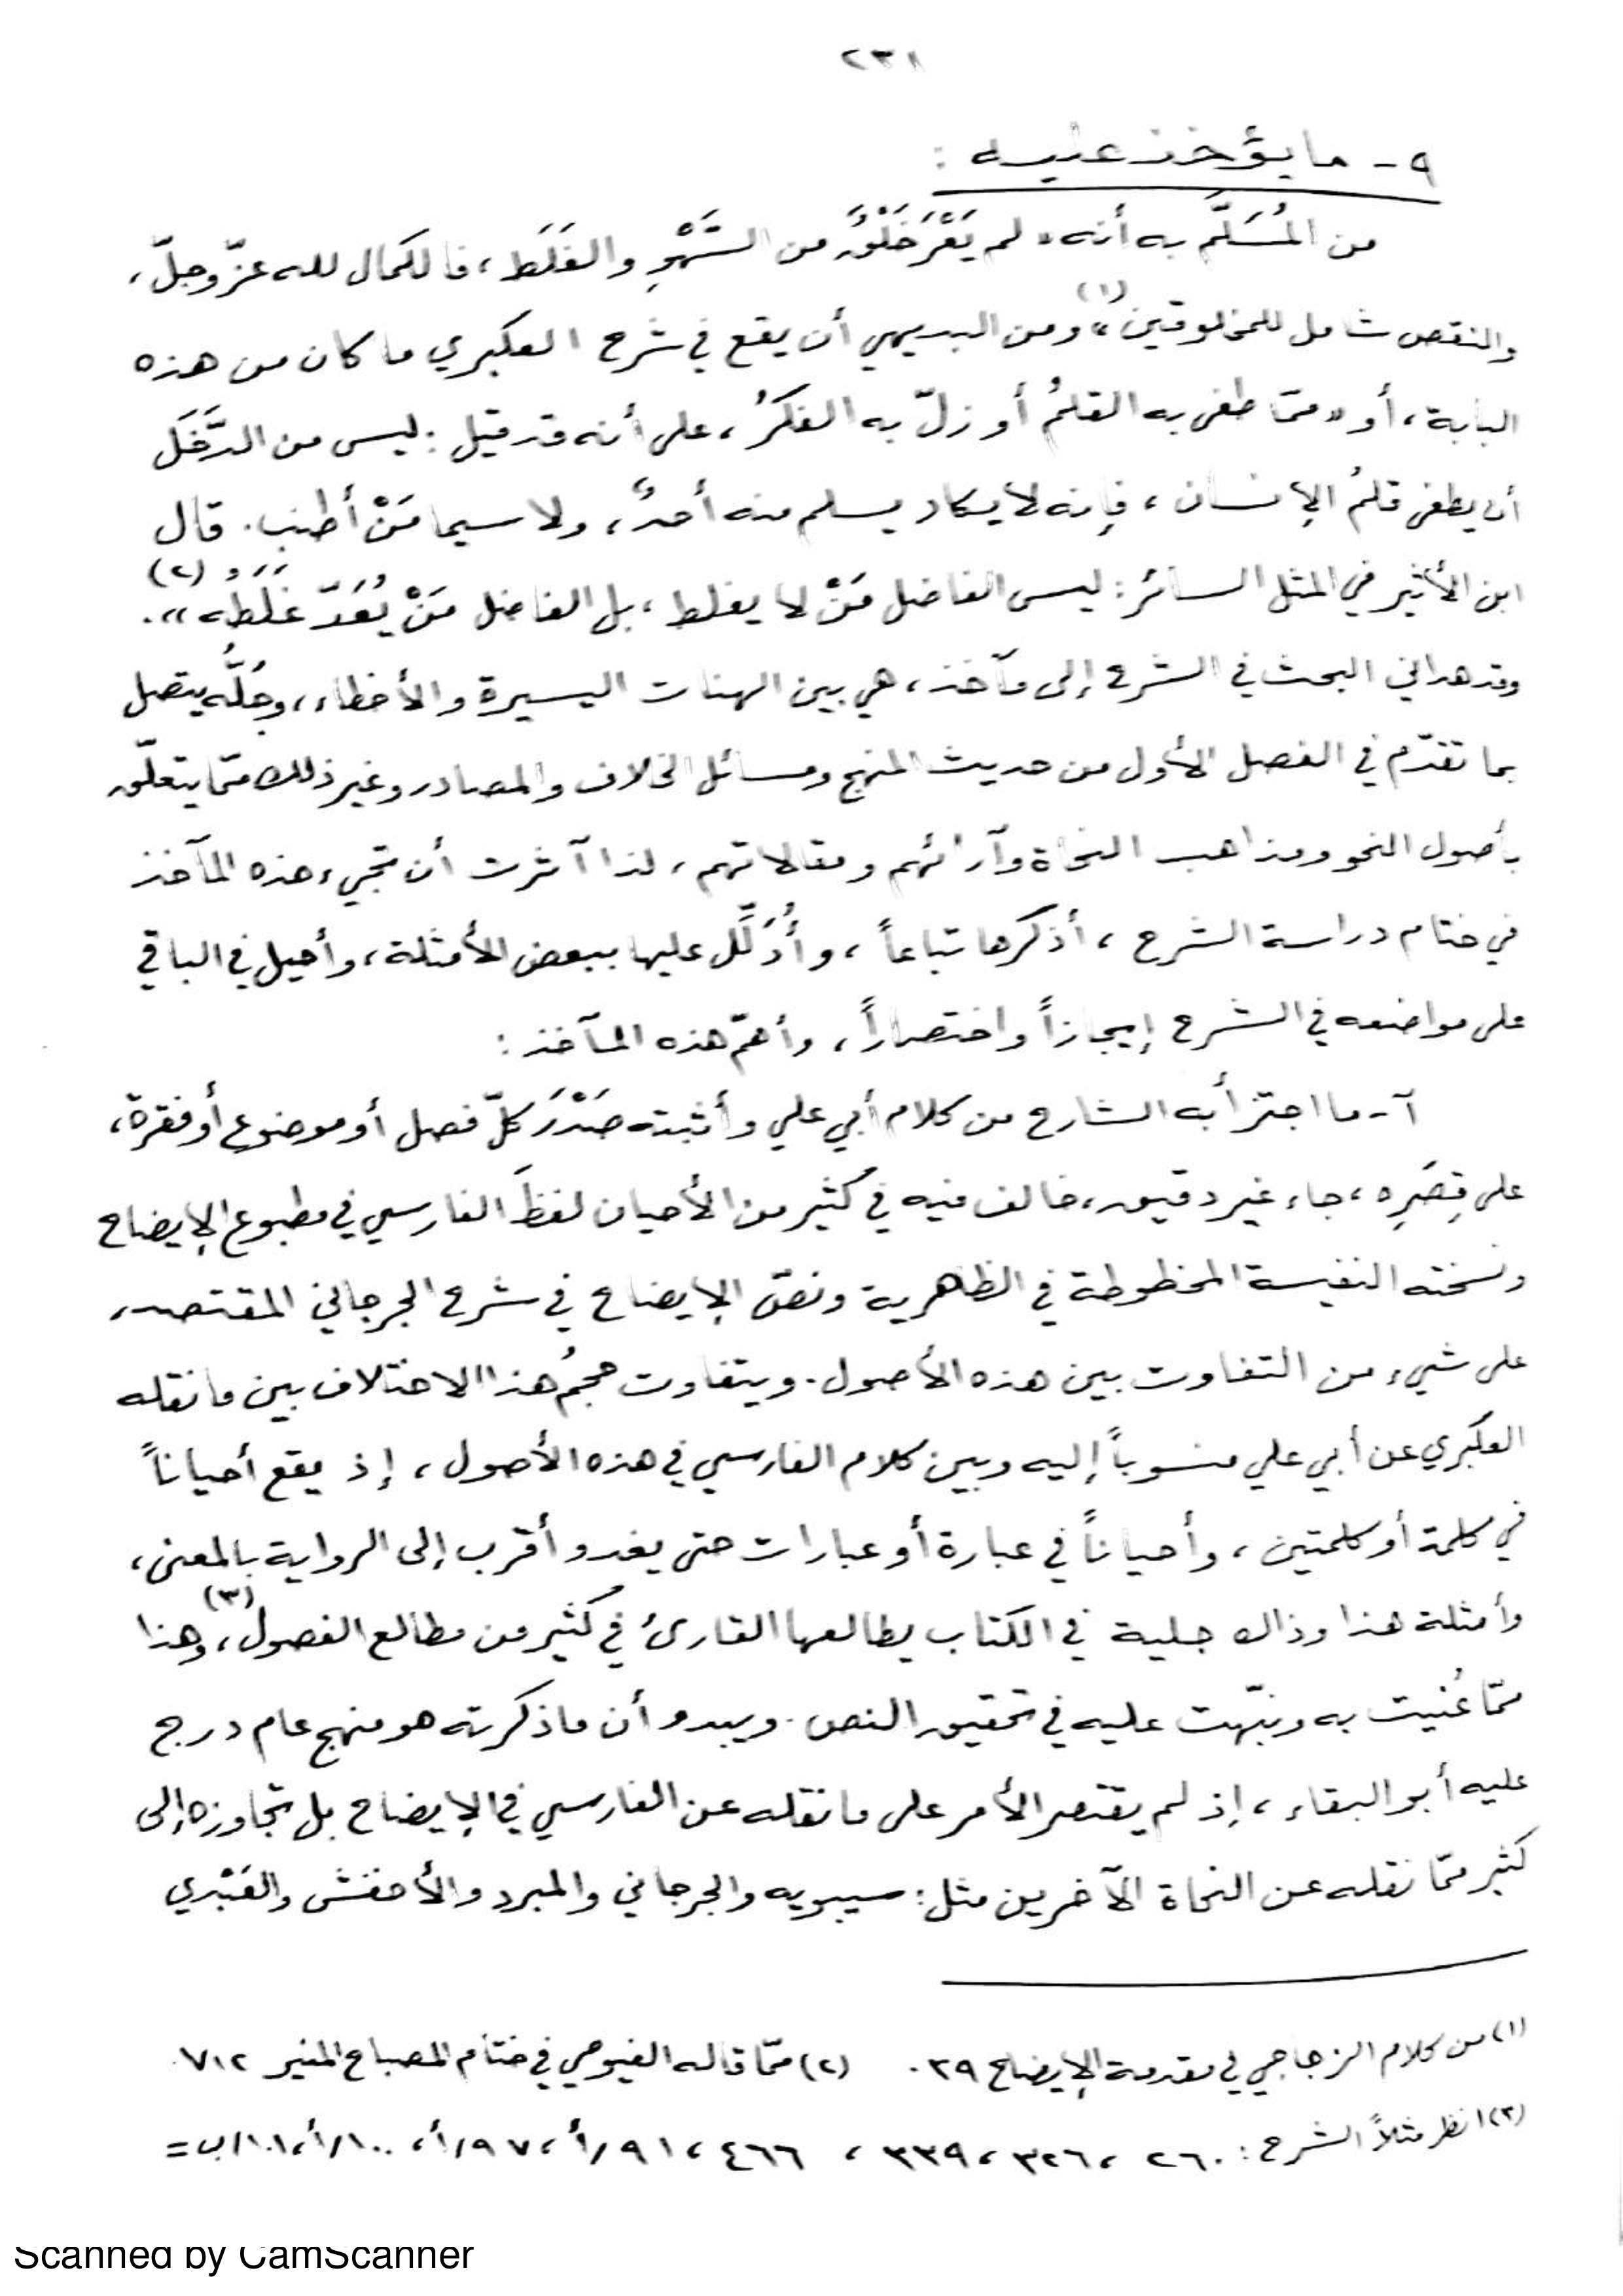 ٢٣٨
٩ - ما يؤخذ عليه :
من المُسَلَّم به أنه « لم يَعْرَ خَلْقٌ من السَّهْوِ والغَلَط ، فالكمال لله عزّ وجلّ ،
والنقص شامل للمخلوقين »(١) ، ومن البديهي أن يقع في شرح العكبري ما كان من هذه
البابة ، أو « ممّا طغى به القلمُ أو زلّ به الفكرُ ، على أنه قد قيل : ليس من الدَّخَل
أن يطغى قلمُ الإنسان ، فإنه لا يكاد يسلم منه أحدٌ ، ولا سيما مَنْ أطنب . قال
ابن الأثير في المثل السائر : ليس الفاضل مَنْ لا يغلط ، بل الفاضل مَنْ يُعَدّ غَلَطُه »(٢) .
وقد هداني البحث في الشرح إلى مآخذ ، هي بين الهنات اليسيرة والأخطاء ، وجُلُّه يتصل
بما تقدّم في الفصل الأول من حديث المنهج ومسائل الخلاف والمصادر وغير ذلك ممّا يتعلّق
بأصول النحو ومذاهب النحاة وآرائهم ومقالاتهم ، لذا آثرت أن تجيء هذه المآخذ
في ختام دراسة الشرح ، أذكرها تباعاً ، وأُدَلِّل عليها ببعض الأمثلة ، وأحيل في الباقي
على مواضعه في الشرح إيجازاً واختصاراً ، وأهمّ هذه المآخذ :
آ - ما اجتزأ به الشارح من كلام أبي علي وأثبته صَدْرَ كلّ فصل أو موضوع أو فقرة ،
على قِصَرِه ، جاء غير دقيق ، خالف فيه في كثير من الأحيان لفظَ الفارسي في مطبوع الإيضاح
ونسخته النفيسة المخطوطة في الظاهرية ونصّ الإيضاح في شرح الجرجاني المقتصد ،
على شيء من التفاوت بين هذه الأصول . ويتفاوت حجمُ هذا الاختلاف بين ما نقله
العكبري عن أبي علي منسوباً إليه وبين كلام الفارسي في هذه الأصول ، إذ يقع أحياناً
في كلمة أو كلمتين ، وأحياناً في عبارة أو عبارات حتى يغدو أقرب إلى الرواية بالمعنى ،
وأمثلة هذا وذاك جلية في الكتاب يطالعها القارئ في كثير من مطالع الفصول(٣) ، وهذا
ممّا عُنيت به ونبّهت عليه في تحقيق النص . ويبدو أن ما ذكرته هو منهج عام درج
عليه أبو البقاء ، إذ لم يقتصر الأمر على ما نقله عن الفارسي في الإيضاح بل تجاوزه إلى
كثير ممّا نقله عن النحاة الآخرين مثل : سيبويه والجرجاني والمبرد والأخفش والعَبْدي
(١) من كلام الزجاجي في مقدمة الإيضاح ٣٩ . (٢) ممّا قاله الفيومي في ختام المصباح المنير ٧١٢ .
(٣) انظر مثلاً الشرح : ٢٦٠ ، ٣٢٦ ، ٣٣٩ ، ٤٦٦ ، ٩١/أ ، ٩٧/أ ، ١٠٠/أ ، ١٠١/ب =
Scanned by CamScanner